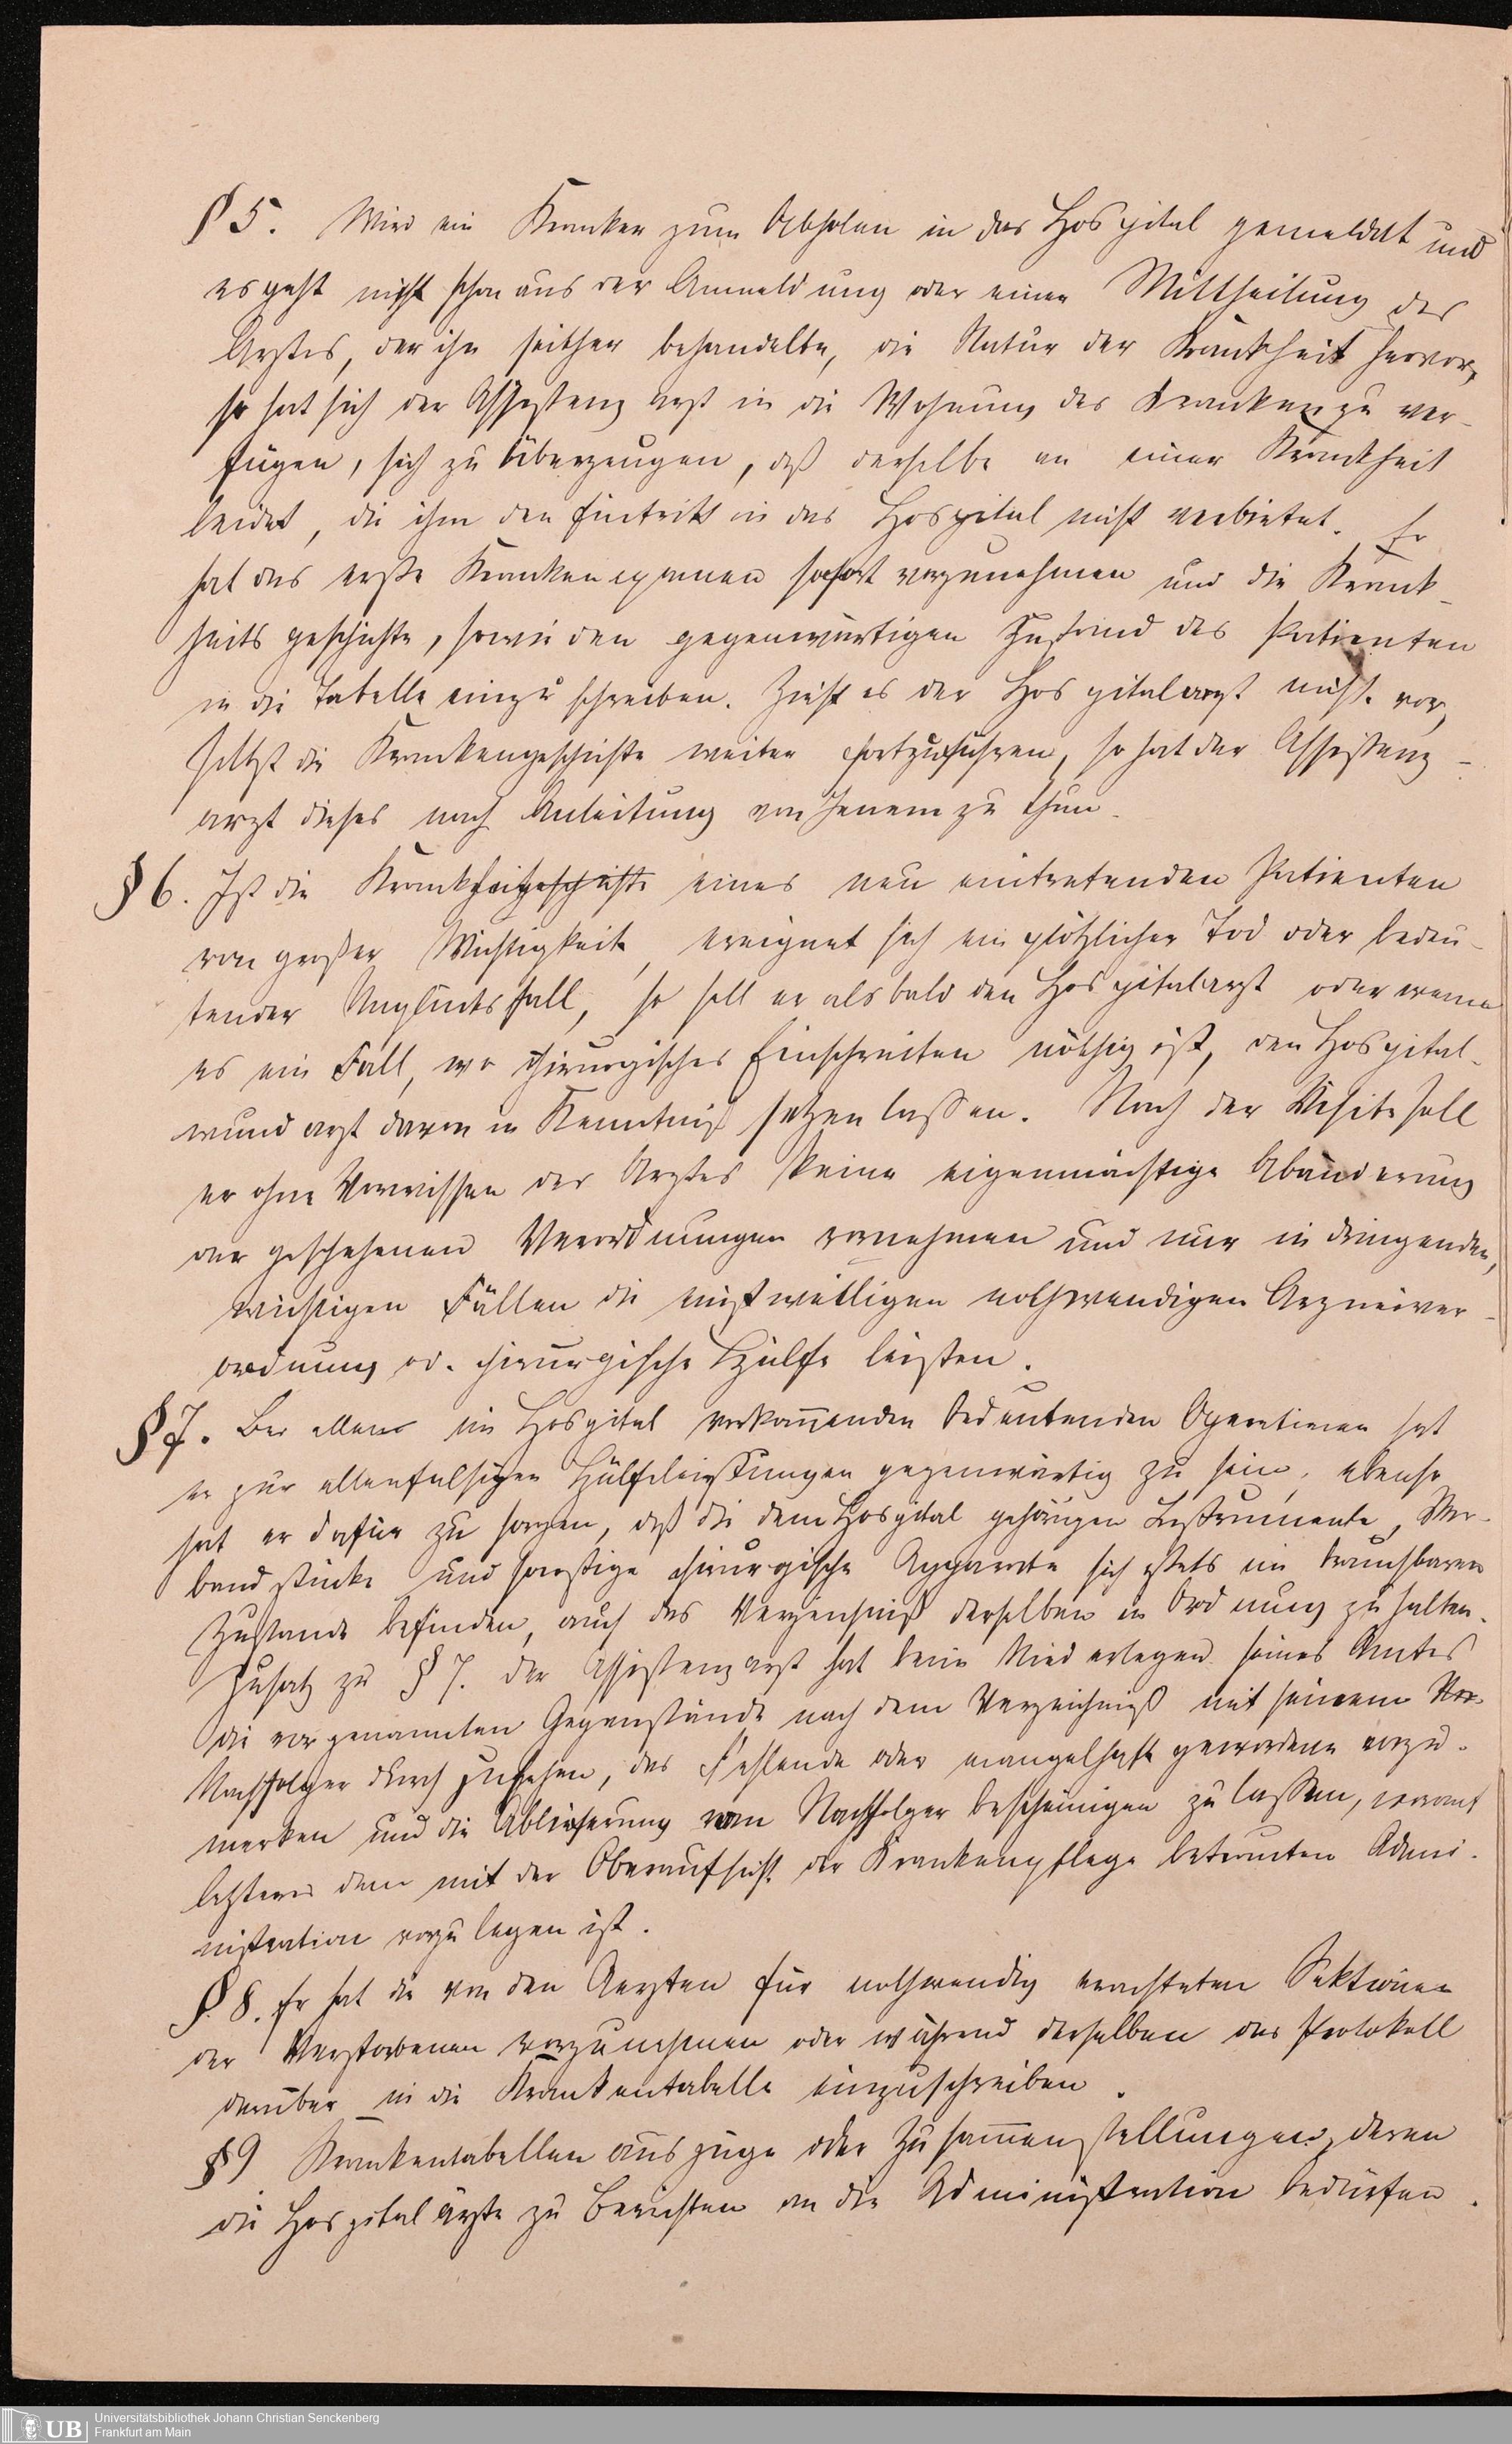 § 5. Wird ein Kranker zum Abholen in das Hospital gemeldet und
es geht nicht schon aus der Anmeldung oder einer Mittheilung des
Arztes, der ihn seither behandelte, die Natur der Krankheit hervor,
so hat sich der Assistenzarzt in die Wohnung des Kranken zu ver-
fügen, sich zu überzeugen, daß derselbe an einer Krankheit
leidet, die ihm den Eintritt in das Hospital nicht verbietet. Er
hat das erste Krankenexamen sofort vorzunehmen und die Krank-
heitsgeschichte, sowie den gegenwärtigen Zustand des Patienten
in die Tabelle einzuschreiben. Zieht es der Hospitalarzt nicht vor,
selbst die Krankengeschichte weiter fortzuführen, so hat der Assistenz-
arzt dieses nach Anleitung von Jenem zu thun.
§ 6. Ist die Krankheitsgeschichte eines neu eintretenden Patienten
von großer Wichtigkeit, ereignet sich ein plötzlicher Tod oder bedeu-
tender Unglücksfall, so soll er alsbald den Hospitalarzt oder wenn
es ein Fall, wo chirurgisches Einschreiten nöthig ist, den Hospital-
wundarzt davon in Kenntniß setzen lassen. Nach der Visite soll
er ohne Vorwissen des Arztes keine eigenmächtige Abänderung
der geschehenen Verordnungen vornehmen und nur in dringenden,
wichtigen Fällen die einstweiligen nothwendigen Arzneiver-
ordnung od. chirurgische Hülfe leisten.
§ 7. Bei allen im Hospital vorkom̅enden bedeutenden Operationen hat
er zur allenfalsigen Hülfeleistungen gegenwärtig zu sein, ebenso
hat er dafür zu sorgen, daß die dem Hospital gehörigen Instrumente, Ver-
bandstücke und sonstige chirurgische Apparate sich stets im brauchbaren
Zustande befinden, auch das Verzeichniß derselben in Ordnung zu halten.
Zusatz zu § 7. Der Assistenzarzt hat beim Niederlegen seines Amtes
die vorgenannten Gegenstände nach dem Verzeichniß mit seinem
Nachfolger durchzugehen, das Fehlende oder mangelhaft gewordene anzu-
merken und die Ablieferung vom Nachfolger bescheinigen zu lassen, worauf
letzteres dem mit der Oberaufsicht der Krankenpflege betrauten Admi-
nistration vorzulegen ist.
§. 8. Er hat die von den Aerzten für nothwendig erachteten Sektionen
der Verstorbenen vorzunehmen oder während derselben das Protokoll
darüber in die Krankentabelle einzuschreiben.
§ 9 Krankentabellenauszüge oder Zusam̅enstellungen, deren
die Hospitalärzte zu Berichten an die Administration bedürfen.
UB Universitätsbibliothek Johann Christian Senckenberg
Frankfurt am Main